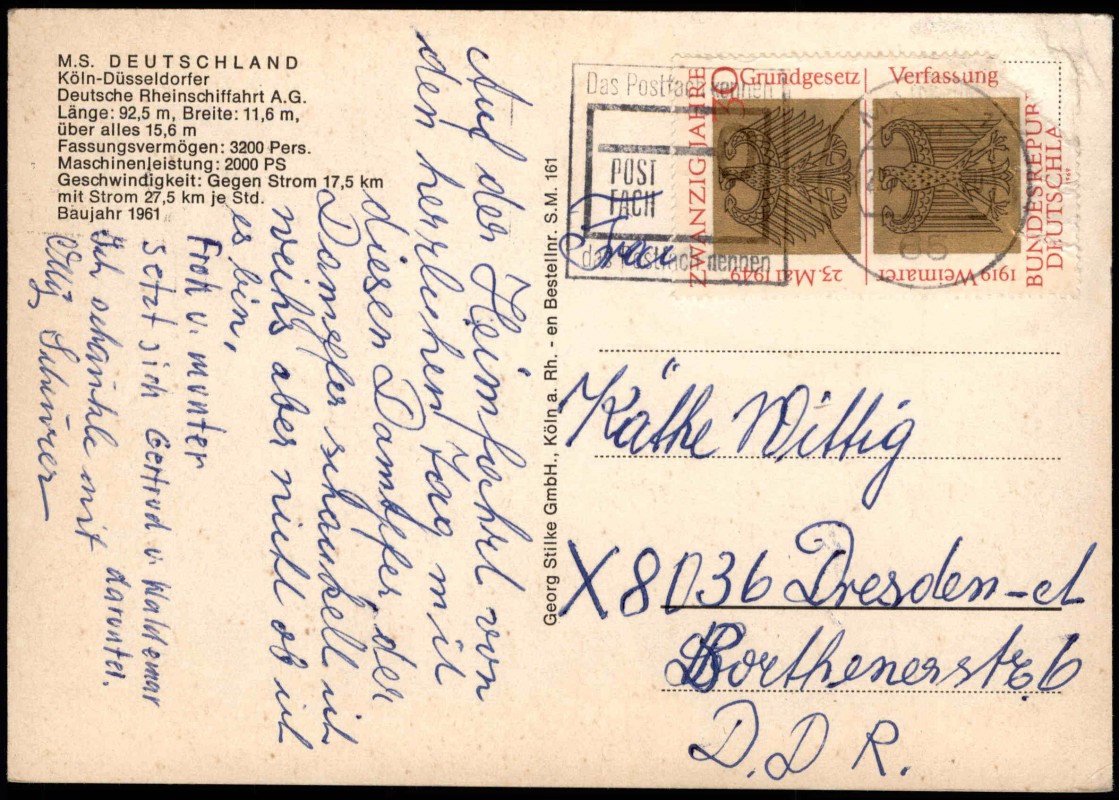 M.S. DEUTSCHLAND
Köln-Düsseldorfer
Deutsche Rheinschiffahrt A.G.
Länge: 92,5 m, Breite: 11,6 m,
über alles 15,6 m
Fassungsvermögen: 3200 Pers.
Maschinenleistung: 2000 PS
Geschwindigkeit: Gegen Strom 17,5 km
mit Strom 27,5 km je Std.
Baujahr 1961
Auf der Heimfahrt von
den herrlichen Tag mit
diesen Dampfer, der
Dampfer schaukelt ich
weihs aber nicht ob ich
es bin,
Froh u. munter
setzt sich Gertrud u. Waldemar
darunter.
Ich schaukle mit
Georg Stilke GmbH., Köln a. Rh. - en Bestellnr. S.M. 161
Das Postfach kennen
POST
FACH
das Postfach nennen
ZWANZIG JAHRE
30
Grundgesetz
Verfassung
23. Mai 1949
1919 Weimarer
BUNDESREPUB
DEUTSCHLA
1969
86
Frau
Käthe Wittig
X8036 Dresden-
Borthenerstr. 6
D.D.R.